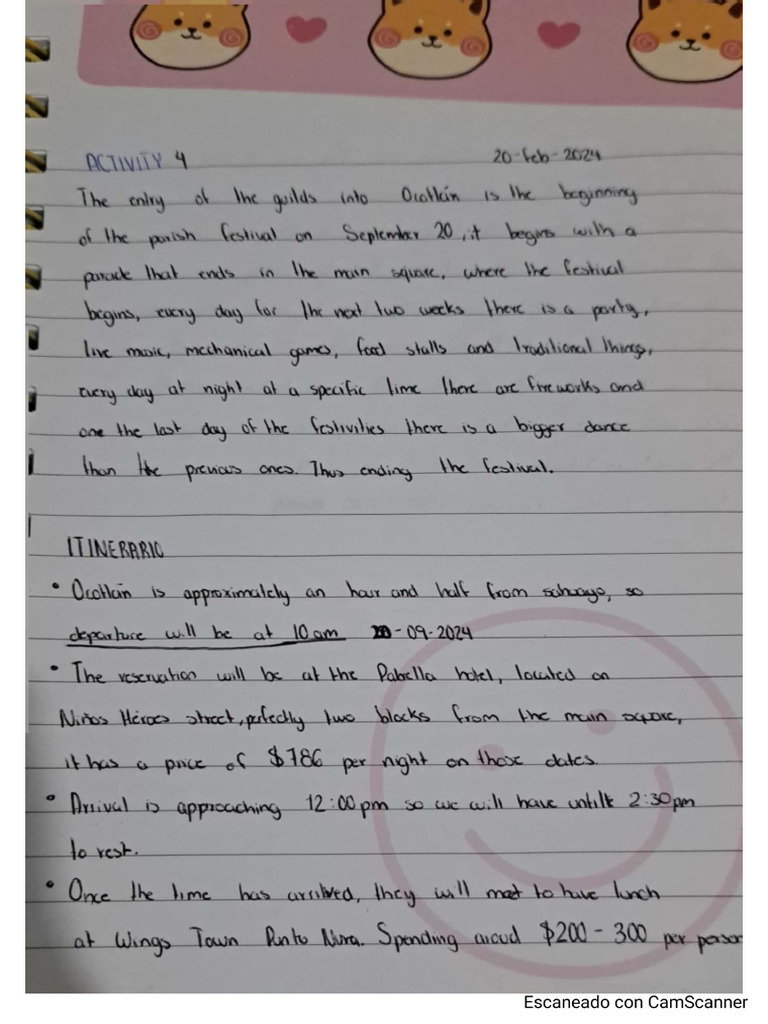 ACTIVITY 4 20-feb-2024
The entry of the guilds into Ocotlán is the beginning
of the parish festival on September 20, it begins with a
parade that ends in the main square, where the festival
begins, every day for the next two weeks there is a party,
live music, mechanical games, food stalls and traditional things,
every day at night at a specific time there are fireworks and
one the last day of the festivities there is a bigger dance
than the previous ones. Thus ending the festival.
ITINERARIO
• Ocotlán is approximately an hour and half from , so
departure will be at 10am -09-2024
• The reservation will be at the Pabella hotel, located on
Niños Héroes street, perfectly two blocks from the main square,
it has a price of $786 per night on those dates.
• Arrival is approaching 12:00pm so we will have untilt 2:30pm
to rest.
• Once the time has arrived, they will met to have lunch
at Wings Town Punto Nura. Spending aroud $200 - 300 per person
Escaneado con CamScanner